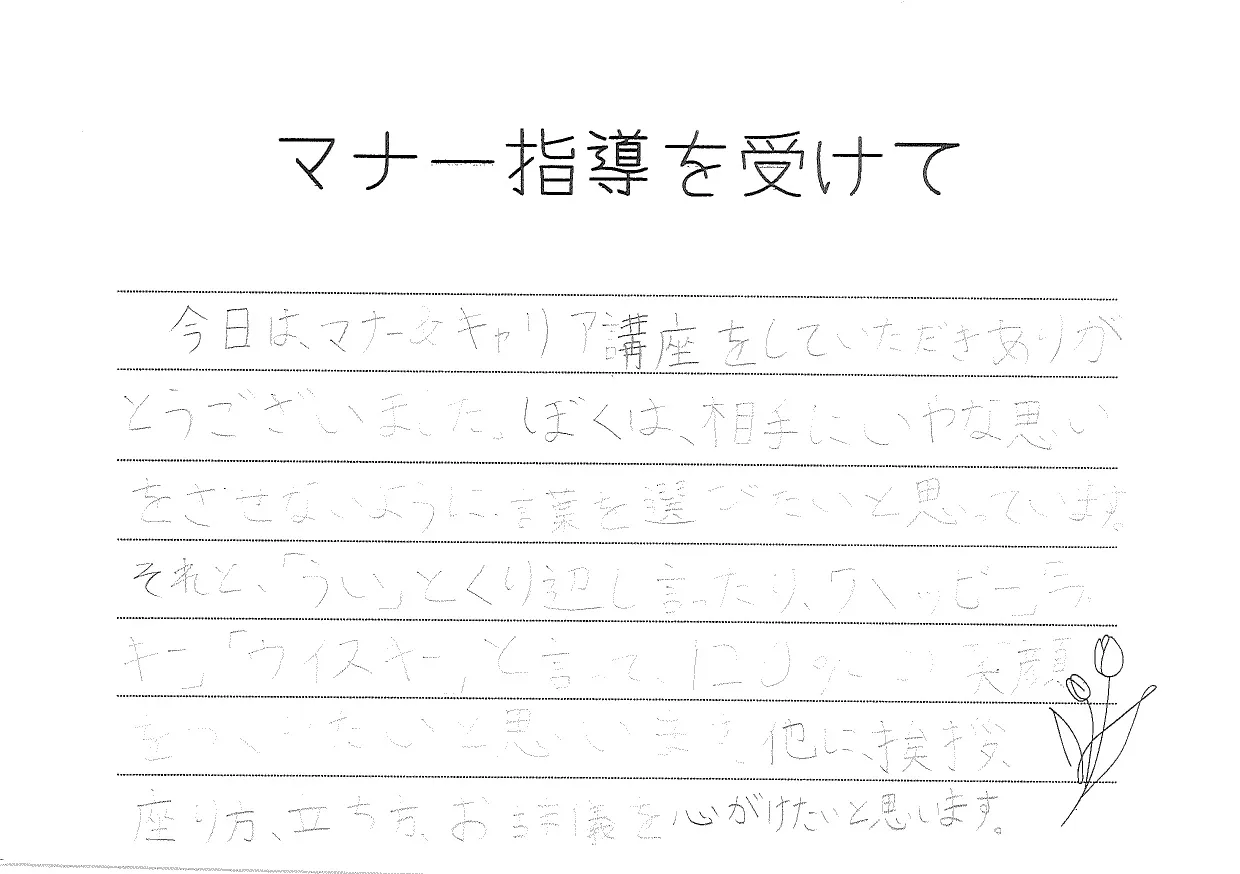 マナー指導を受けて
今日は、マナー&キャリア講座をしていただきありが
とうございました。ぼくは、相手にいやな思い
をさせないように言葉を選びたいと思っています。
それと、「うい」とくり返し言ったり、「ハッピー」「ラッ
キー」「ウイスキー」と言って、120%の笑顔
をつくりたいと思います。他に、挨拶、
座り方、立ち方、お辞儀を心がけたいと思います。